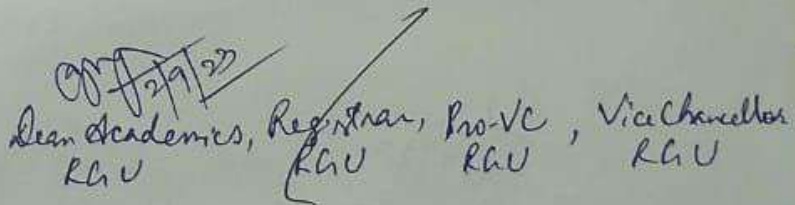 12/9/23
Dean Academics, Registrar, Pro-VC, Vice Chancellor
RGU RGU RGU RGU